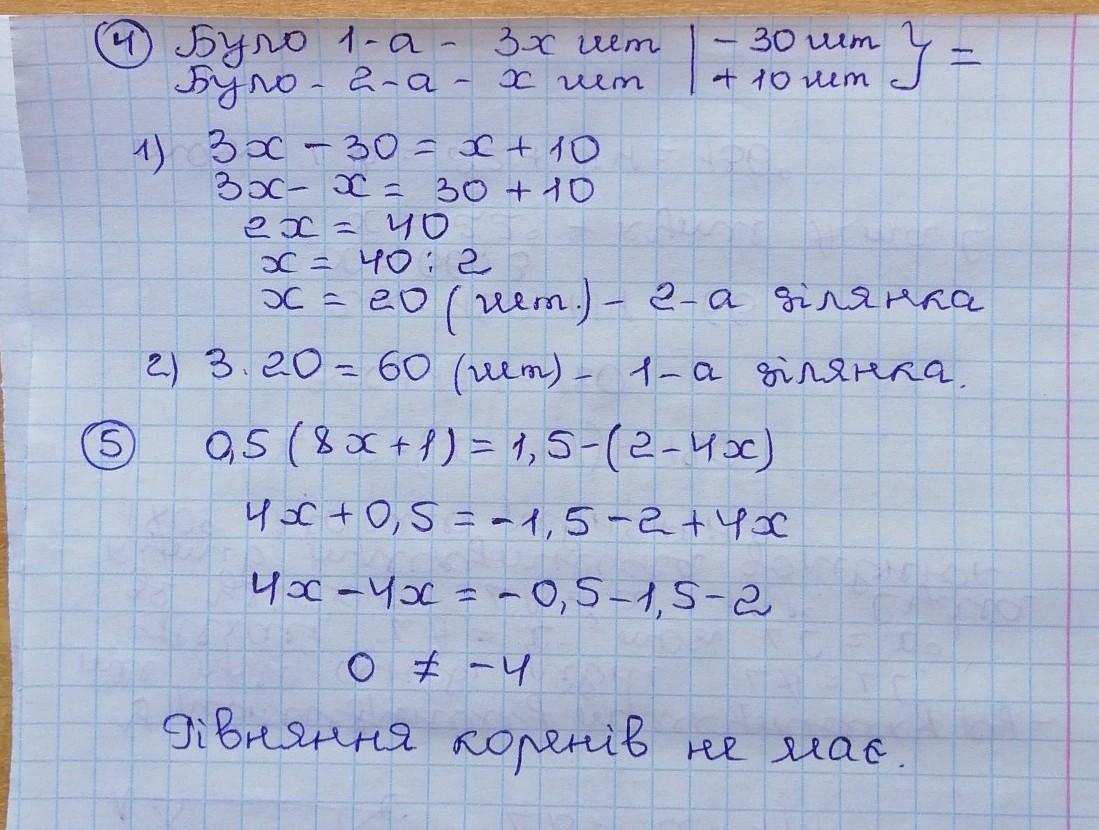 ④ Було 1-а - 3х шт | - 30 шт } =
Було - 2-а - х шт | + 10 шт
1) 3х - 30 = х + 10
3х - х = 30 + 10
2х = 40
х = 40 : 2
х = 20 (шт.) - 2-а ділянка
2) 3 · 20 = 60 (шт) - 1-а ділянка.
⑤ 0,5 (8х + 1) = 1,5 - (2 - 4х)
4х + 0,5 = -1,5 - 2 + 4х
4х - 4х = - 0,5 - 1,5 - 2
0 ≠ -4
Рівняння коренів не має.